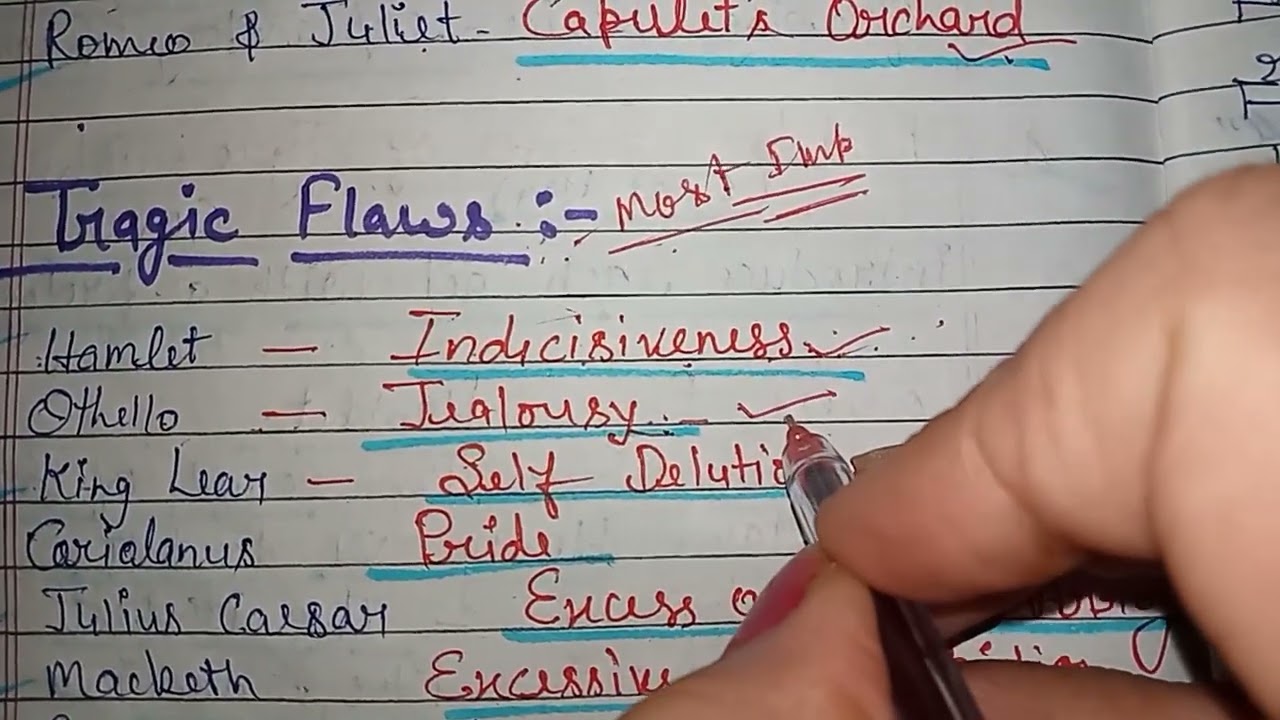 Romeo & Juliet- Capulet's Orchard
Tragic Flaws :- Most Imp
Hamlet — Indicisiveness
Othello — Jealousy
King Lear — Self Delutio
Corialanus Pride
Julius Caesar Excess
Macketh Excessive